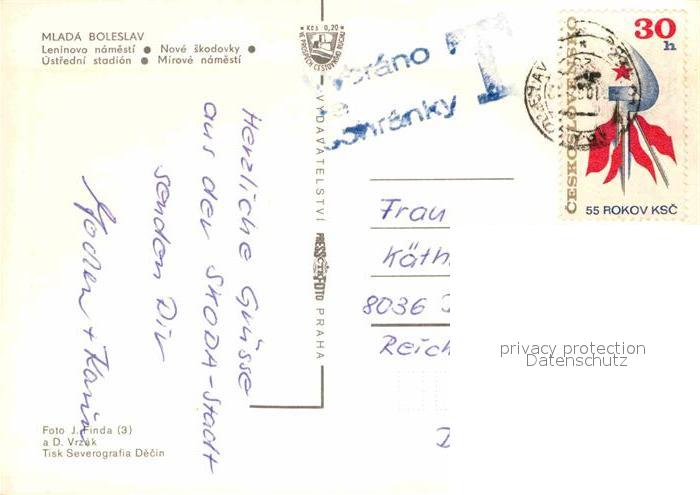 MLADÁ BOLESLAV
Leninovo náměstí ● Nové škodovky ●
Ústřední stadión ● Mírové náměstí
Kčs 0,20
VE PROSPĚCH CESTOVNÍHO RUCHU
VYDAVATELSTVÍ PRESSFOTO PRAHA
Vybráno
ze
schránky
T
ČESKOSLOVENSKO
30
h
55 ROKOV KSČ
Herzliche Grüsse
aus der SKODA-Stadt
senden Dir
Jochen + Karin
Frau
Käth
8036
Reich
privacy protection
Datenschutz
Foto J. Finda (3)
a D. Vrzák
Tisk Severografia Děčín